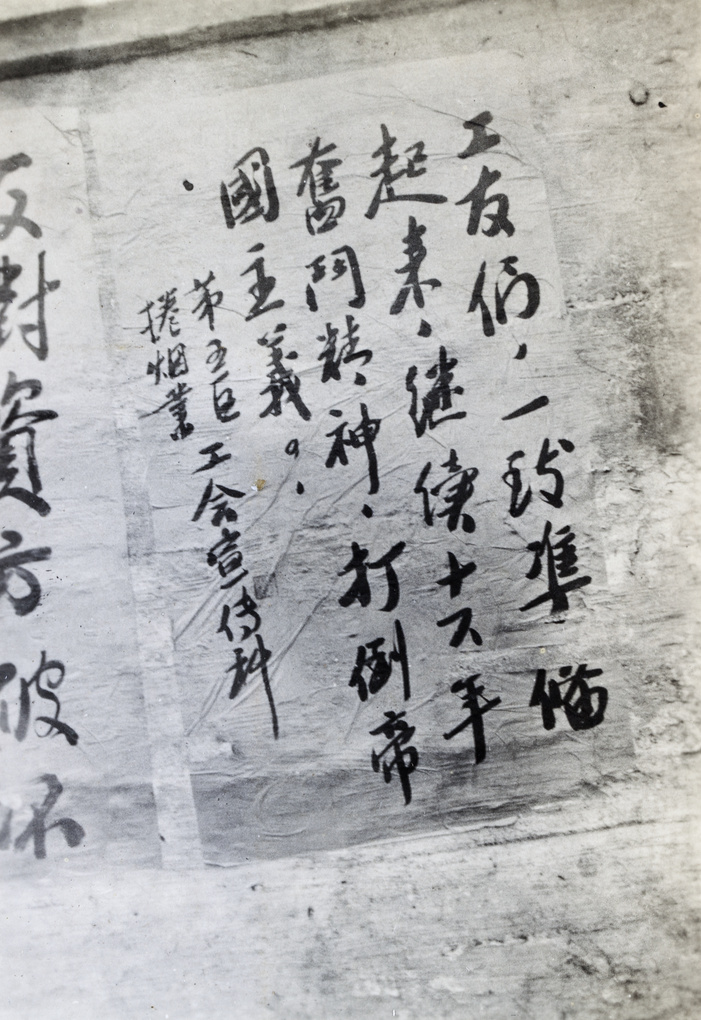 工友们，一致準備
起来，継續十六年
奮鬥精神，打倒帝
國主義。
第五区
捲烟業
工会宣传科
反對資方破坏